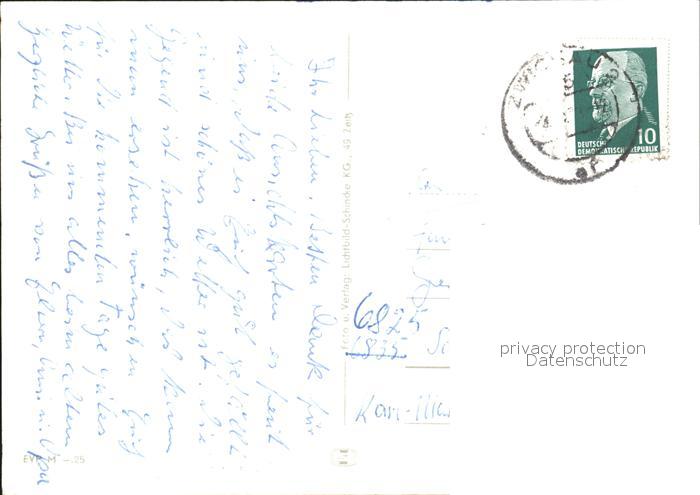 Ihr Lieben, Besten Dank für
beide Ansichtskarten es freut
uns, daß es Euch gut gefällt
und schönes Wetter ist. Die
Gegend ist herrlich, das kann
man ersehen, wünschen Euch
für die kommenden Tage gutes
Wetter. Bei uns alles beim alten
Herzliche Grüße von
Foto u. Verlag: Lichtbild-Schincke KG, 49 Zeitz
EVP M -.25
ZWICKAU
10
DEUTSCHE
DEMOKRATISCHE REPUBLIK
6825
6835
Karl-Mar
privacy protection
Datenschutz